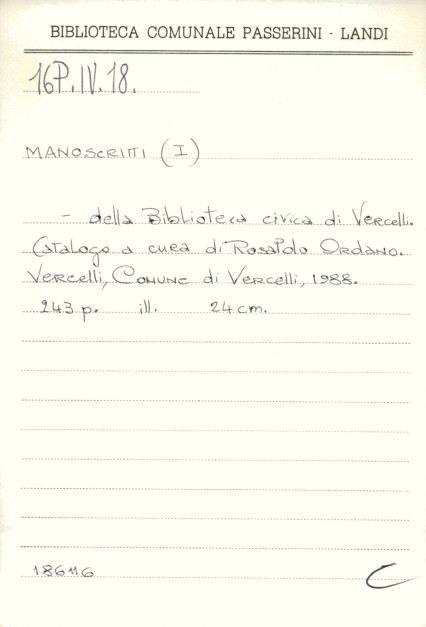 BIBLIOTECA COMUNALE PASSERINI - LANDI
16P.IV.18.
MANOSCRITTI (I)
- della Biblioteca civica di Vercelli.
Catalogo a cura di Rosaldo Ordano.
Vercelli, Comune di Vercelli, 1988.
243 p. ill. 24 cm.
186116
C